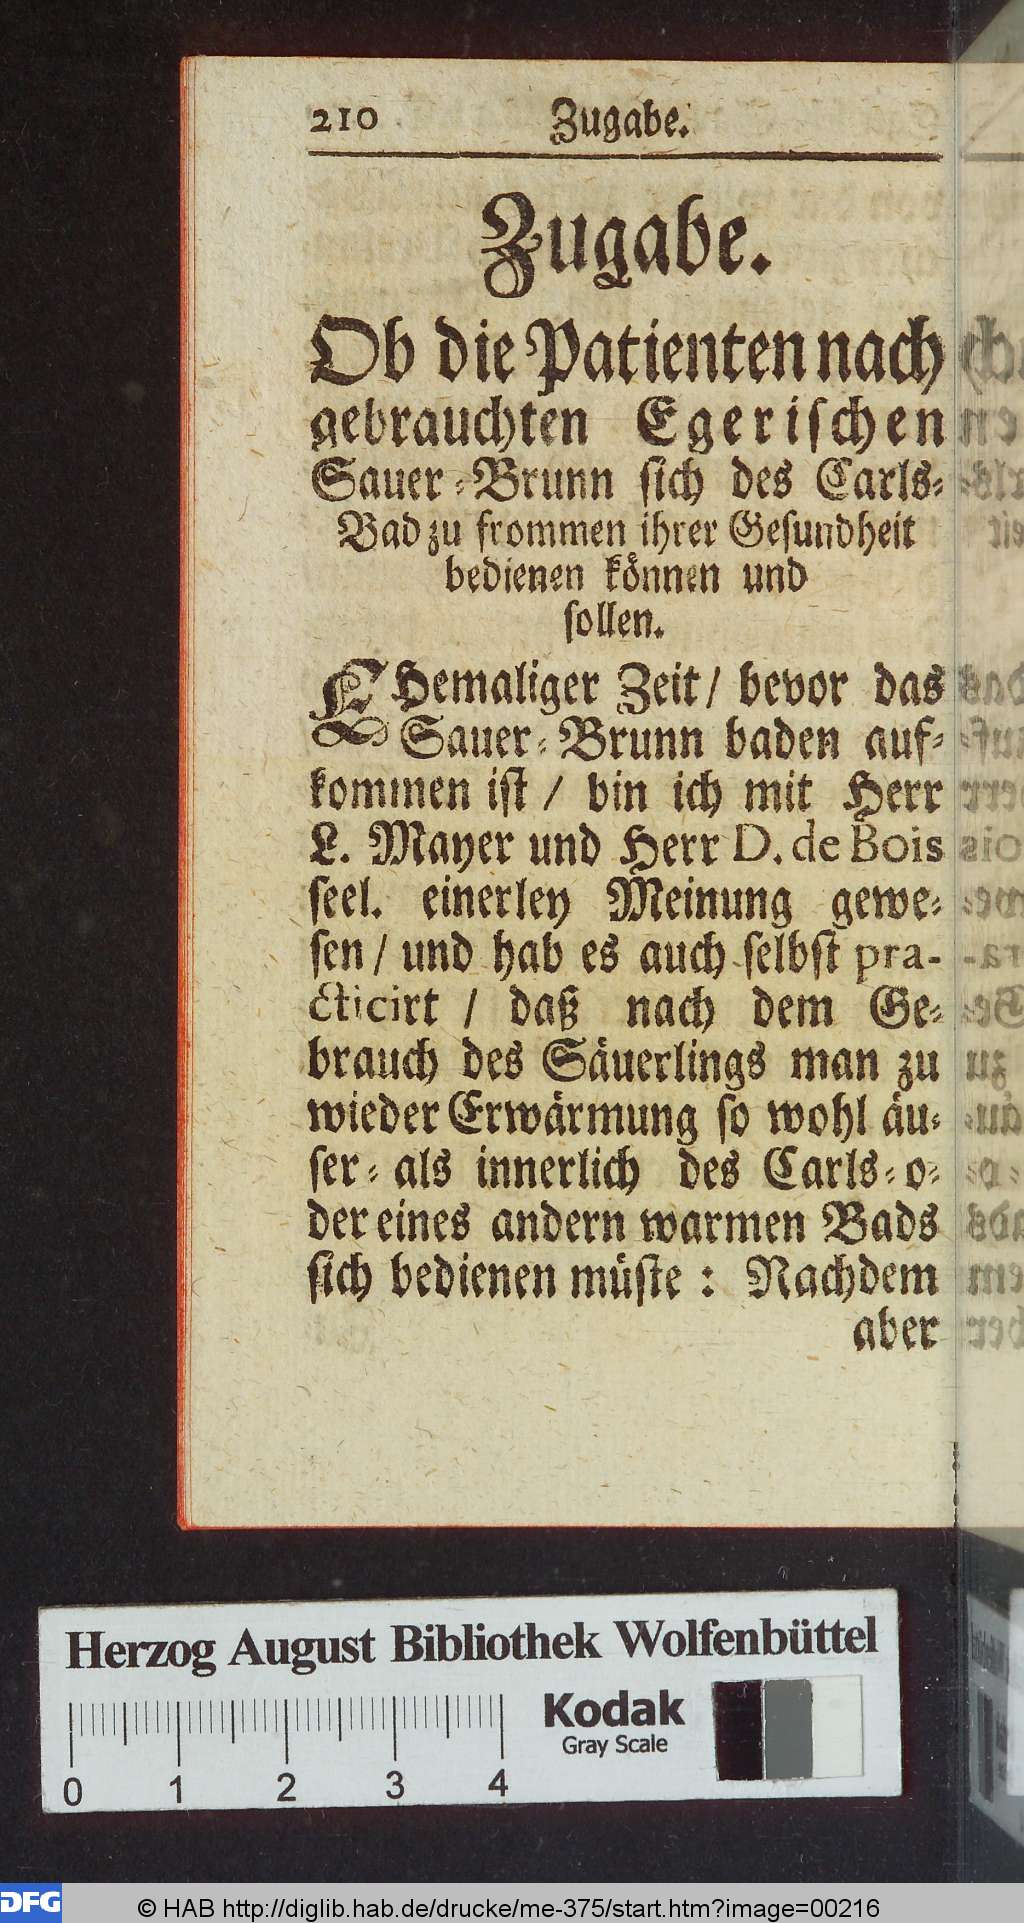 210 Zugabe.
Zugabe.
Ob die Patienten nach
gebrauchten Egerischen
Sauer-Brunn sich des Carls-
Bad zu frommen ihrer Gesundheit
bedienen können und
sollen.
EHemaliger Zeit / bevor das
Sauer-Brunn baden auf-
kommen ist / bin ich mit Herr
L. Mayer und Herr D. de Bois
seel. einerley Meinung gewe-
sen / und hab es auch selbst pra-
cticirt / daß nach dem Ge-
brauch des Säuerlings man zu
wieder Erwärmung so wohl äu-
ser- als innerlich des Carls- o-
der eines andern warmen Bads
sich bedienen müste : Nachdem
aber
Herzog August Bibliothek Wolfenbüttel
Kodak
Gray Scale
0 1 2 3 4
DFG
© HAB http://diglib.hab.de/drucke/me-375/start.htm?image=00216